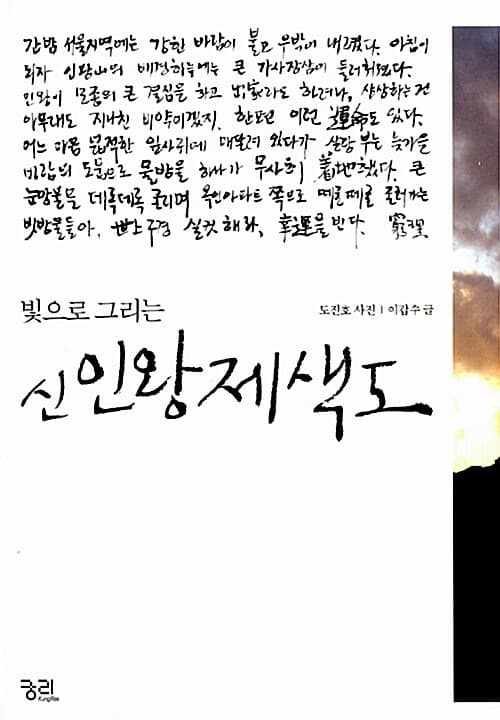 간밤 서울지역에는 강한 바람이 불고 우박이 내렸다. 아침이
되자 인왕山의 배경하늘에는 큰 가사장삼이 둘러쳐졌다.
인왕이 모종의 큰 결심을 하고 出家라도 하려나, 상상하는 건
아무래도 지나친 비약이겠지. 한편 이런 運命도 있다.
어느 마을 한적한 잎사귀에 매달려 있다가 살랑 부는 늦가을
바람의 도움으로 몸을 하나가 무사히 着地했다. 큰
눈망울을 데룩데룩 굴리며 옥인아파트 쪽으로 떼굴떼굴 굴러가는
빗방울들아, 世上구경 실컷 해라, 幸運을 빈다. 窮理
빛으로 그리는
도진호 사진 | 이갑수 글
신인왕제색도
궁리
KungRee